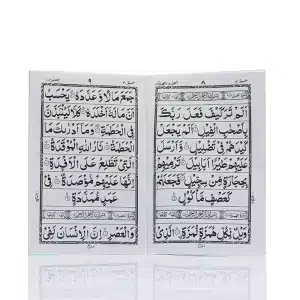 ٨
اَلَمْ تَرَ كَيْفَ فَعَلَ رَبُّكَ
بِاَصْحٰبِ الْفِيْلِ اَلَمْ يَجْعَلْ
كَيْدَهُمْ فِيْ تَضْلِيْلٍ وَّاَرْسَلَ
عَلَيْهِمْ طَيْرًا اَبَابِيْلَ تَرْمِيْهِمْ
بِحِجَارَةٍ مِّنْ سِجِّيْلٍ فَجَعَلَهُمْ
كَعَصْفٍ مَّاْكُوْلٍ
وَيْلٌ لِّكُلِّ هُمَزَةٍ لُّمَزَةِ ࣙالَّذِيْ
٩
جَمَعَ مَالًا وَّعَدَّدَهٗ يَحْسَبُ
اَنَّ مَالَهٗٓ اَخْلَدَهٗ كَلَّا لَيُنْۢبَذَنَّ
فِي الْحُطَمَةِ وَمَآ اَدْرٰىكَ مَا
الْحُطَمَةُ نَارُ اللّٰهِ الْمُوْقَدَةُ
الَّتِيْ تَطَّلِعُ عَلَى الْاَفْـِٕدَةِ
اِنَّهَا عَلَيْهِمْ مُّؤْصَدَةٌ فِيْ
عَمَدٍ مُّمَدَّدَةٍ
وَالْعَصْرِ اِنَّ الْاِنْسَانَ لَفِيْ